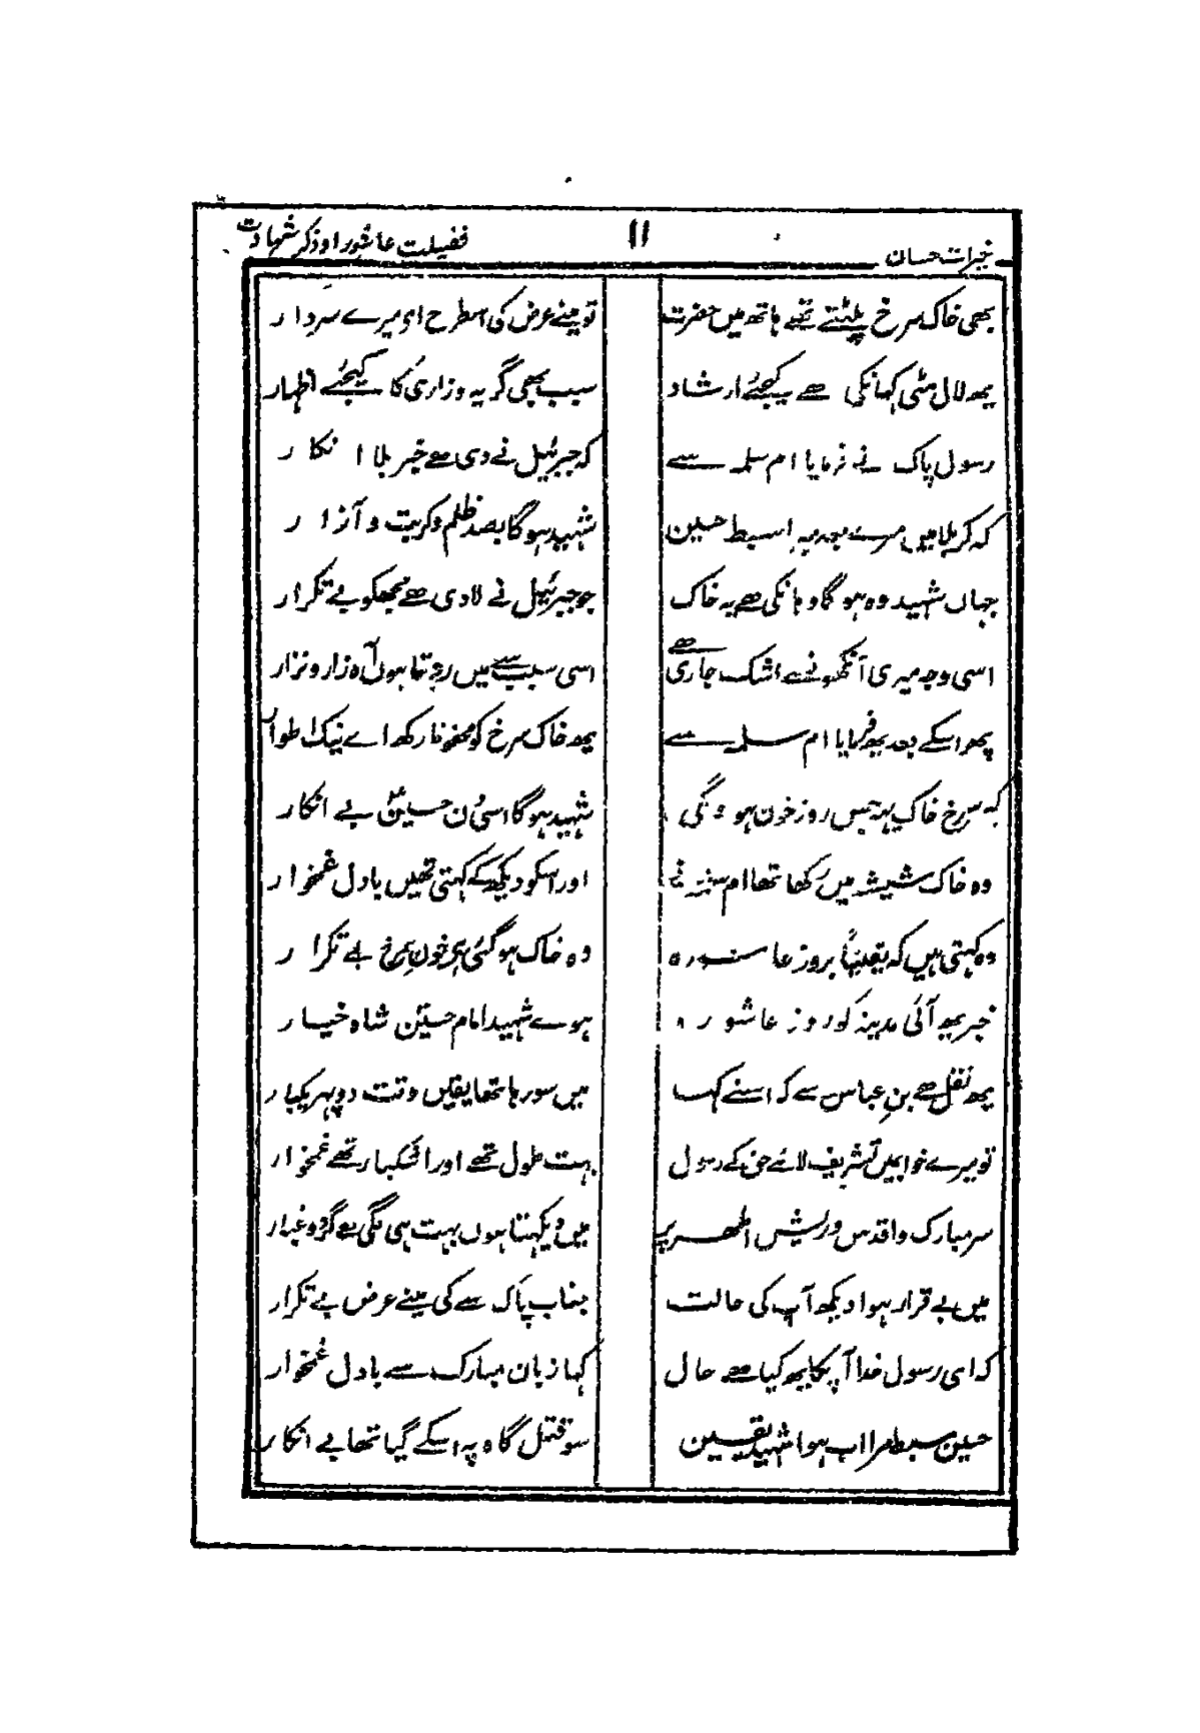 خیرات حسان
۱۱
فضیلت عاشورا و ذکر شہادت
بھی خاک سرخ پلٹتے تھے ہاتھ میں حضرت
تو مینے عرض کی اسطرح اے میرے سردار
یہ لال مٹی کہانکی ہے کیجئے ارشاد
سبب بھی گریہ وزاری کا کیجئے اظہار
رسول پاک نے فرمایا ام سلمہ سے
کہ جبرئیل نے دی ہے خبر بلا انکار
کہ کربلا میں مرے بعد سبط حسین
شہید ہوگا بصد ظلم وکربت و آزار
جہاں شہید وہ ہوگا وہانکی ہے یہ خاک
جو جبرئیل نے لادی ہے مجھکو بے تکرار
اسی وجہ میری آنکھونسے اشک جاری ہے
اسی سبب سے میں روتا ہوں آہ زار ونزار
پھر اسکے بعد یہ فرمایا ام سلمہ سے
یہ خاک سرخ کو محفوظ رکھ اے نیک اطوار
کہ سرخ خاک یہ جس روز خون ہووگی
شہید ہوگا اسی دن حسین بے انکار
وہ خاک شیشہ میں رکھا تھا ام سلمہ نے
اور اسکو دیکھ کے کہتی تھیں بادل غمخوار
وہ کہتی ہیں کہ یقیناً بروز عاشورہ
وہ خاک ہوگئی خون سرخ بے تکرار
خبر یہ آئی مدینہ کو روز عاشورہ
ہوے شہید امام حسین شاہ خیار
یہ نقل ہے بن عباس سے کہ اسنے کہا
میں سو رہا تھا یقیں وقت دوپہر یکبار
تو میرے خواب میں تشریف لائے حق کے رسول
بہت ملول تھے اور اشکبار تھے غمخوار
سر مبارک واقدس وریش اطہر پر
میں دیکہتا ہوں بہت ہی لگی ہے گرد و غبار
میں بے قرار ہوا دیکھ آپ کی حالت
جناب پاک سے کی مینے عرض بے تکرار
کہ ای رسول خدا آپکا یہ کیا ہے حال
کہا زبان مبارک سے بادل غمخوار
حسین سبط مرا اب ہوا شہید یقین
سو قتل گاہ پہ اسکے گیا تھا بے انکار